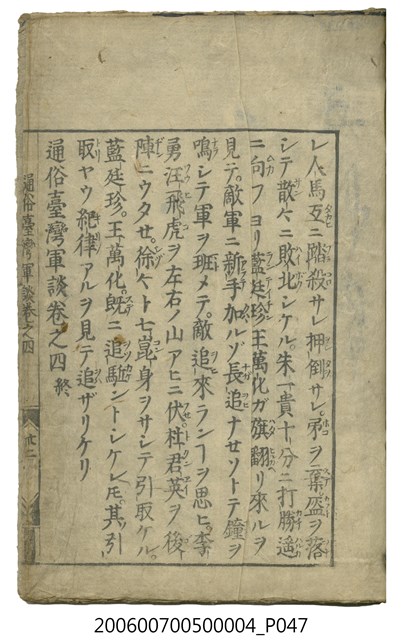 レ人馬互ニ踏殺サレ押倒サレ弟ヲ棄盔ヲ落
シテ散々ニ敗北シケル朱一貴十分ニ打勝遙
ニ向フヨリ藍廷珍王萬化ガ旗翻リ來ルヲ
見テ敵軍ニ新手加ルゾ長追ナセソトテ鐘ヲ
鳴シテ軍ヲ班メテ敵追來ランヿヲ思ヒ李
勇汪飛虎ヲ左右ノ山アヒニ伏杜君英ヲ後
陣ニウタせ徐々ト七崑身ヲサシテ引取ケル
藍廷珍王萬化既ニ追駈ントシケレ𪜈其引
取ヤウ絶律アルヲ見テ追ザリケリ
通俗臺灣軍談卷之四終
通俗臺灣軍談卷之四
廿二
200600700500004_P047